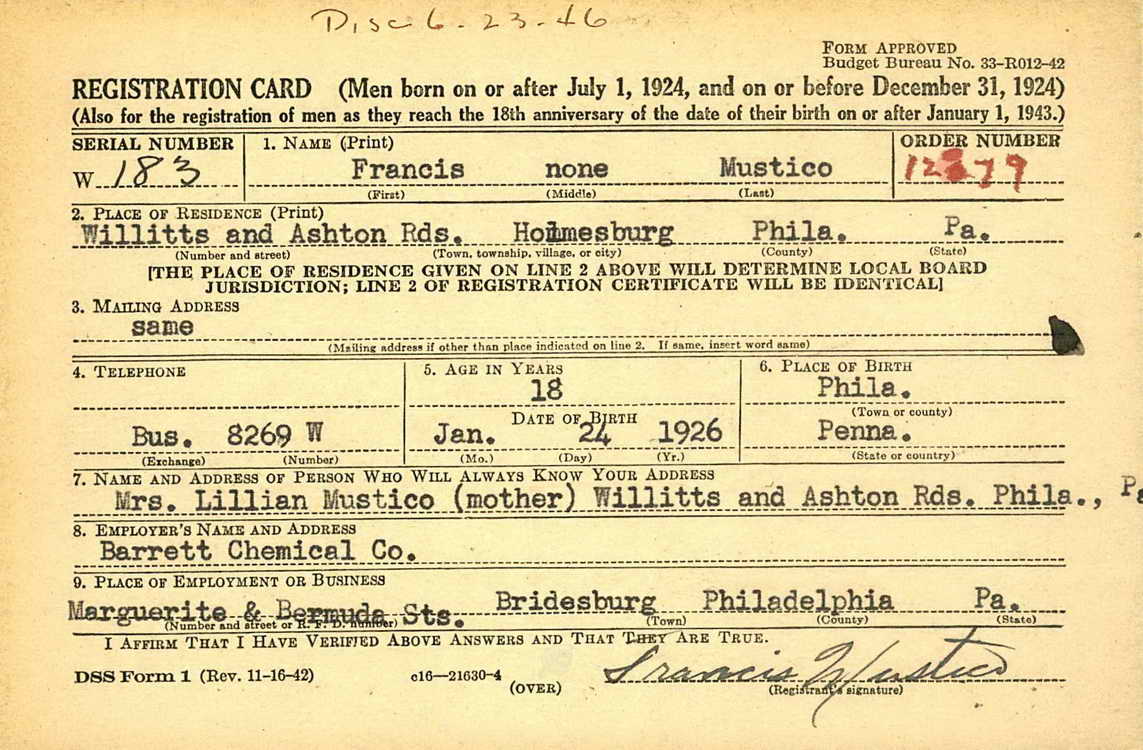 Disc 6-23-46
FORM APPROVED
Budget Bureau No. 33-R012-42
REGISTRATION CARD (Men born on or after July 1, 1924, and on or before December 31, 1924)
(Also for the registration of men as they reach the 18th anniversary of the date of their birth on or after January 1, 1943.)
SERIAL NUMBER 1. NAME (Print) ORDER NUMBER
W 183 Francis none Mustico
(First) (Middle) (Last)
2. PLACE OF RESIDENCE (Print)
Willitts and Ashton Rds. Holmesburg Phila. Pa.
(Number and street) (Town, township, village, or city) (County) (State)
[THE PLACE OF RESIDENCE GIVEN ON LINE 2 ABOVE WILL DETERMINE LOCAL BOARD
JURISDICTION; LINE 2 OF REGISTRATION CERTIFICATE WILL BE IDENTICAL]
3. MAILING ADDRESS
same
(Mailing address if other than place indicated on line 2. If same, insert word same)
4. TELEPHONE 5. AGE IN YEARS 6. PLACE OF BIRTH
18 Phila.
DATE OF BIRTH (Town or county)
Bus. 8269 W Jan. 24 1926 Penna.
(Exchange) (Number) (Mo.) (Day) (Yr.) (State or country)
7. NAME AND ADDRESS OF PERSON WHO WILL ALWAYS KNOW YOUR ADDRESS
Mrs. Lillian Mustico (mother) Willitts and Ashton Rds. Phila., Pa
8. EMPLOYER'S NAME AND ADDRESS
Barrett Chemical Co.
9. PLACE OF EMPLOYMENT OR BUSINESS
Marguerite & Bermuda Sts. Bridesburg Philadelphia Pa.
(Number and street or R. F. D. number) (Town) (County) (State)
I AFFIRM THAT I HAVE VERIFIED ABOVE ANSWERS AND THAT THEY ARE TRUE.
DSS Form 1 (Rev. 11-16-42) c16—21630-4 Francis Mustico
(OVER) (Registrant's signature)